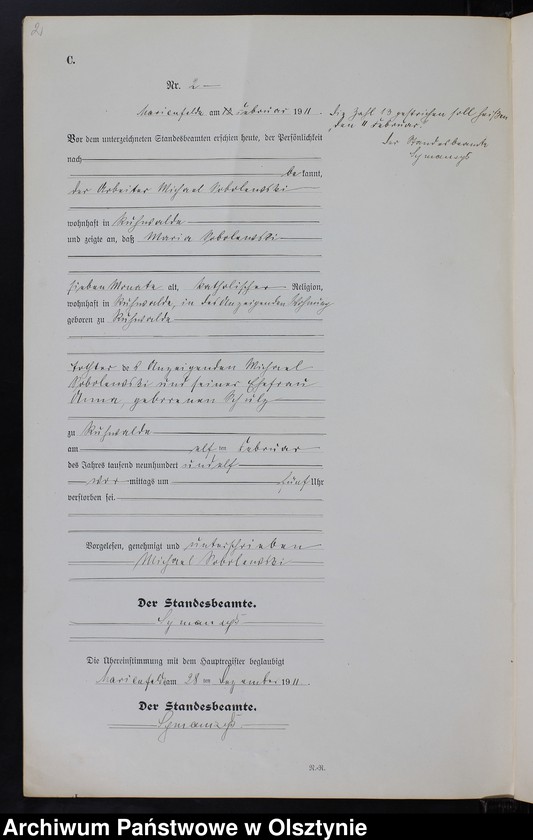 2
C.
Nr. 2
Marienfelde am 13. Februar 1911. Die Zahl 13 gestrichen soll heißen
„den 11 Februar."
Der Standesbeamte
Vor dem unterzeichneten Standesbeamten erschien heute, der Persönlichkeit
nach
be kannt,
der Arbeiter Michael Sobolewski
wohnhaft in Kuhnwalde
und zeigte an, daß Maria Sobolewski
sieben Monate alt, katholischer Religion,
wohnhaft in Kuhnwalde, in des Anzeigenden Wohnung
geboren zu Kuhnwalde
Tochter des Anzeigenden Michael
Sobolewski und seiner Ehefrau
Anna, geborenen Schulz
zu Kuhnwalde
am elften Februar
des Jahres tausend neunhundert und elf
vor mittags um fünf Uhr
verstorben sei.
Vorgelesen, genehmigt und unterschrieben
Michael Sobolewski
Der Standesbeamte.
Die Übereinstimmung mit dem Hauptregister beglaubigt
Marienfelde am 28 ten Dezember 1911.
Der Standesbeamte.
N.-R.
Archiwum Państwowe w Olsztynie